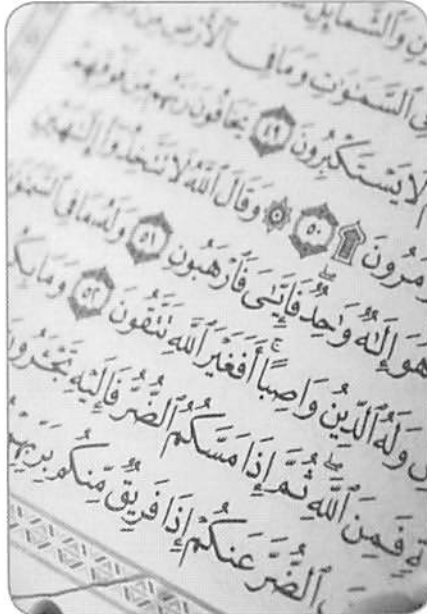 وَٱلشَّمَآئِلِ
ٱلسَّمَٰوَٰتِ وَمَا فِى ٱلْأَرْضِ مِن
لَا يَسْتَكْبِرُونَ ٤٩ يَخَافُونَ رَبَّهُم مِّن فَوْقِهِمْ
۩ ٥٠ ۞ وَقَالَ ٱللَّهُ لَا تَتَّخِذُوٓا۟ إِلَٰهَيْنِ
هُوَ إِلَٰهٌ وَٰحِدٌ ۖ فَإِيَّٰىَ فَٱرْهَبُونِ ٥١ وَلَهُۥ مَا فِى ٱلسَّمَٰوَٰتِ
وَلَهُ ٱلدِّينُ وَاصِبًا ۚ أَفَغَيْرَ ٱللَّهِ تَتَّقُونَ ٥٢ وَمَا
فَمِنَ ٱللَّهِ ۖ ثُمَّ إِذَا مَسَّكُمُ ٱلضُّرُّ فَإِلَيْهِ تَجْـَٔرُونَ
ٱلضُّرَّ عَنكُمْ إِذَا فَرِيقٌ مِّنكُم بِرَبِّهِمْ